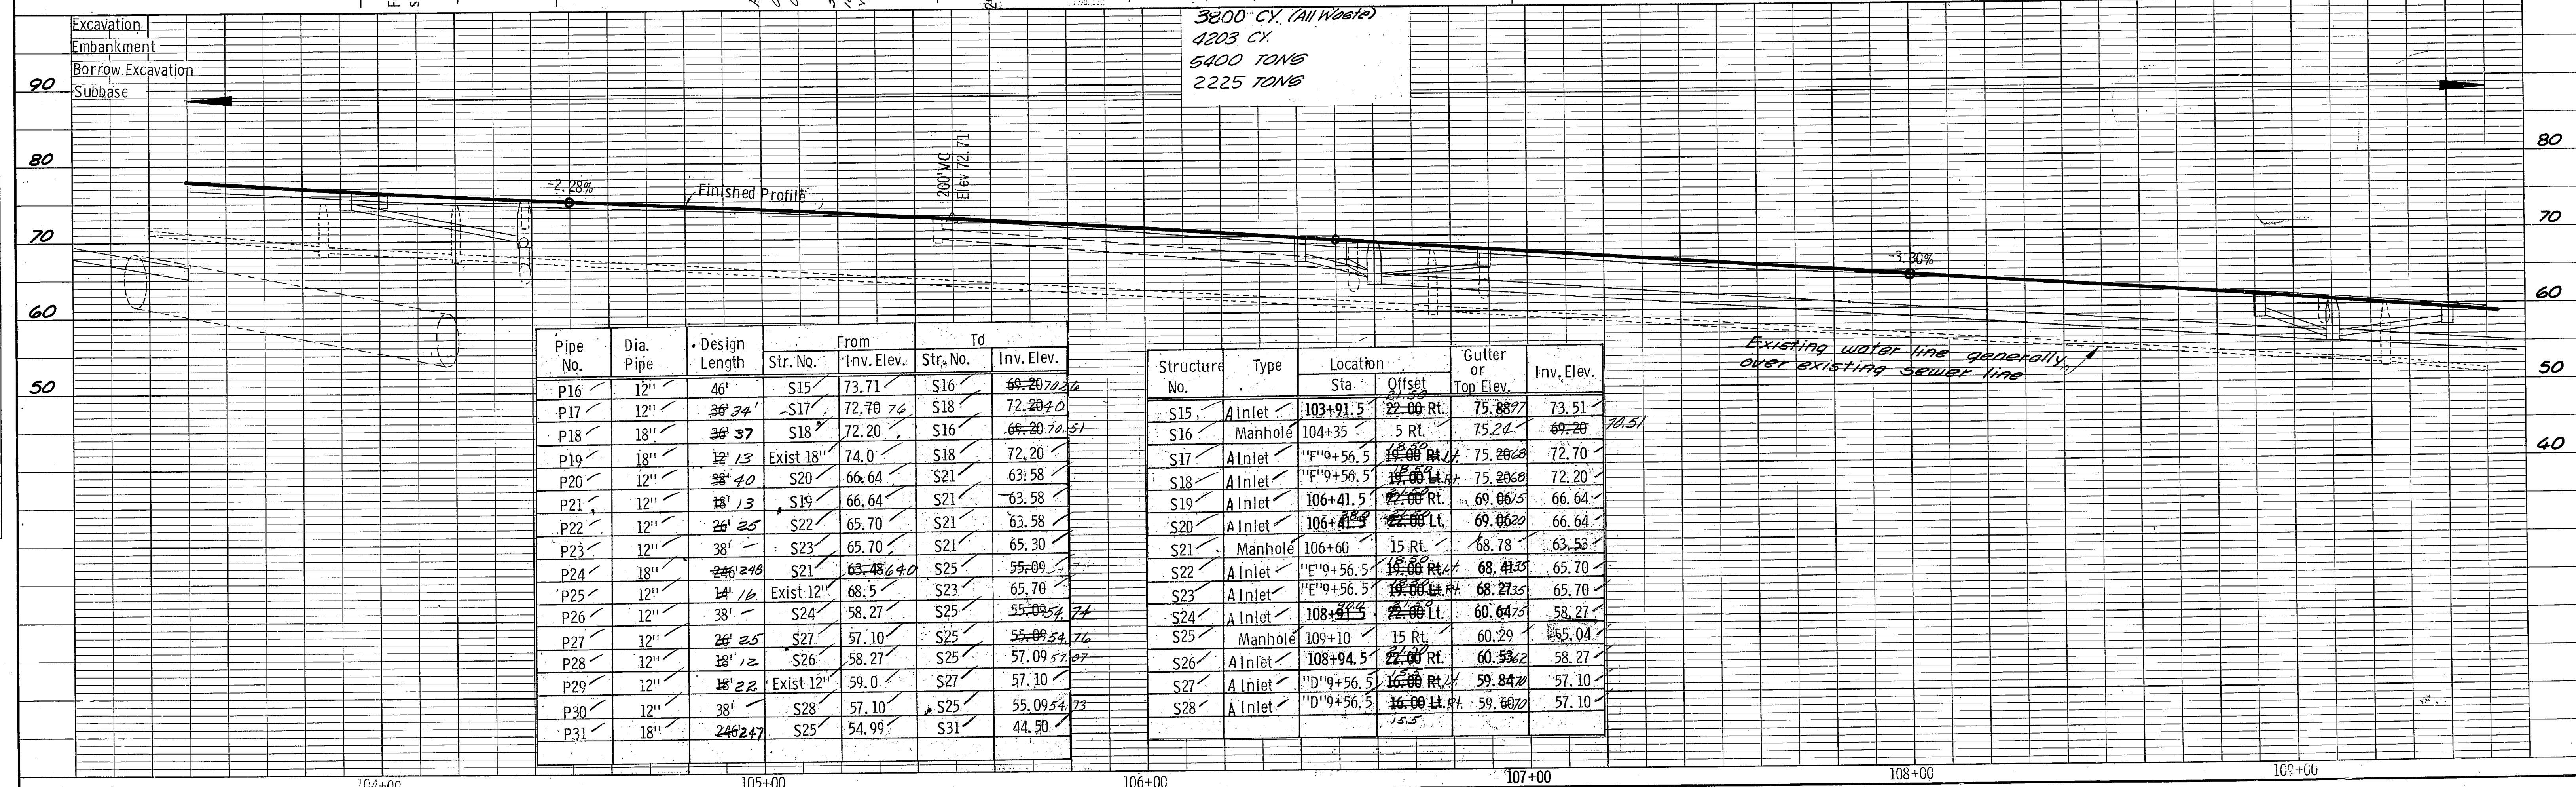 Excavation
Embankment
Borrow Excavation
Subbase
3800 CY. (All Waste)
4203 CY.
5400 TONS
2225 TONS
90
80
70
60
50
80
70
60
50
40
-2.28%
Finished Profile
200' VC
Elev 72.71
-3.30%
Existing water line generally
over existing sewer line
Pipe No. Dia. Pipe Design Length From To
Str. No. Inv. Elev. Str. No. Inv. Elev.
P16 12" 46' S15 73.71 S16 69.20 70.26
P17 12" 36' 34' S17 72.70 76 S18 72.20 40
P18 18" 36' 37 S18 72.20 S16 69.20 70.51
P19 18" 12' 13 Exist 18" 74.0 S18 72.20
P20 12" 38' 40 S20 66.64 S21 63.58
P21 12" 18' 13 S19 66.64 S21 63.58
P22 12" 26' 25 S22 65.70 S21 63.58
P23 12" 38' S23 65.70 S21 65.30
P24 18" 246' 248 S21 63.48 64.0 S25 55.09
P25 12" 14' 16 Exist 12" 68.5 S23 65.70
P26 12" 38' S24 58.27 S25 55.09 54.74
P27 12" 26' 25 S27 57.10 S25 55.09 54.76
P28 12" 18' 12 S26 58.27 S25 57.09 57.07
P29 12" 18' 22 Exist 12" 59.0 S27 57.10
P30 12" 38' S28 57.10 S25 55.09 54.93
P31 18" 246' 247 S25 54.99 S31 44.50
Structure No. Type Location Gutter or Top Elev. Inv. Elev.
Sta Offset
S15 A Inlet 103+91.5 21.50 22.00 Rt. 75.88 97 73.51
S16 Manhole 104+35 5 Rt. 75.24 69.20 70.51
S17 A Inlet "F"9+56.5 18.50 19.00 Rt. Lt. 75.20 68 72.70
S18 A Inlet "F"9+56.5 18.50 19.00 Lt. Rt. 75.20 68 72.20
S19 A Inlet 106+41.5 21.50 22.00 Rt. 69.06 15 66.64
S20 A Inlet 106+41.5 38.0 21.50 22.00 Lt. 69.06 20 66.64
S21 Manhole 106+60 15 Rt. 68.78 63.53
S22 A Inlet "E"9+56.5 18.50 19.00 Rt. Lt. 68.41 35 65.70
S23 A Inlet "E"9+56.5 18.50 19.00 Lt. Rt. 68.27 35 65.70
S24 A Inlet 108+91.5 90.0 21.50 22.00 Lt. 60.64 75 58.27
S25 Manhole 109+10 15 Rt. 60.29 55.04
S26 A Inlet 108+94.5 21.50 22.00 Rt. 60.53 62 58.27
S27 A Inlet "D"9+56.5 15.5 16.00 Rt. Lt. 59.84 70 57.10
S28 A Inlet "D"9+56.5 16.00 Lt. Rt. 59.60 70 57.10
15.5
104+00 105+00 106+00 107+00 108+00 109+00